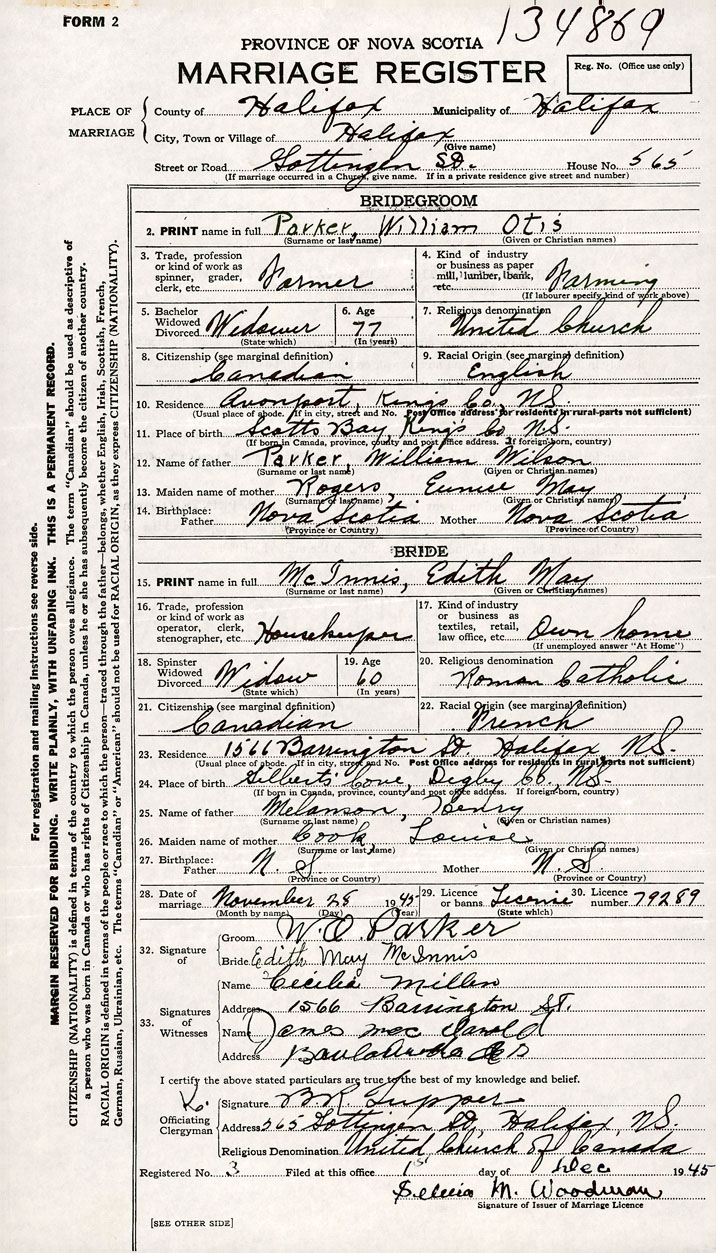 FORM 2
134869
PROVINCE OF NOVA SCOTIA
MARRIAGE REGISTER
Reg. No. (Office use only)
PLACE OF MARRIAGE
County of Halifax Municipality of Halifax
City, Town or Village of Halifax
(Give name)
Street or Road Gottingen St. House No. 565
(If marriage occurred in a Church, give name. If in a private residence give street and number)
BRIDEGROOM
2. PRINT name in full Parker, William Otis
(Surname or last name) (Given or Christian names)
3. Trade, profession or kind of work as spinner, grader, clerk, etc. Farmer
4. Kind of industry or business as paper mill, lumber, bank, etc. Farming
(If labourer specify kind of work above)
5. Bachelor Widowed Divorced Widower
(State which)
6. Age 77
(In years)
7. Religious denomination United Church
8. Citizenship (see marginal definition) Canadian
9. Racial Origin (see marginal definition) English
10. Residence Avonport, Kings Co. N.S.
(Usual place of abode. If in city, street and No. Post Office address for residents in rural parts not sufficient)
11. Place of birth Scotts Bay, Kings Co N.S.
(If born in Canada, province, county and post office address. If foreign-born, country)
12. Name of father Parker, William Wilson
(Surname or last name) (Given or Christian names)
13. Maiden name of mother Rogers, Eunice May
(Surname or last name) (Given or Christian names)
14. Birthplace: Father Nova Scotia Mother Nova Scotia
(Province or Country) (Province or Country)
BRIDE
15. PRINT name in full McInnis, Edith May
(Surname or last name) (Given or Christian names)
16. Trade, profession or kind of work as operator, clerk, stenographer, etc. Housekeeper
17. Kind of industry or business as textiles, retail, law office, etc. Own home
(If unemployed answer "At Home")
18. Spinster Widowed Divorced Widow
(State which)
19. Age 60
(In years)
20. Religious denomination Roman Catholic
21. Citizenship (see marginal definition) Canadian
22. Racial Origin (see marginal definition) French
23. Residence 1566 Barrington St. Halifax N.S.
(Usual place of abode. If in city, street and No. Post Office address for residents in rural parts not sufficient)
24. Place of birth Gilberts Cove, Digby Co. N.S.
(If born in Canada, province, county and post office address. If foreign-born, country)
25. Name of father Melanson, Henry
(Surname or last name) (Given or Christian names)
26. Maiden name of mother Cook, Louise
(Surname or last name) (Given or Christian names)
27. Birthplace: Father N.S Mother N.S
(Province or Country) (Province or Country)
28. Date of marriage November 28 1945
(Month by name) (Day) (Year)
29. Licence or banns License
(State which)
30. Licence number 79289
32. Signature of
Groom W.O. Parker
Bride Edith May McInnis
33. Signatures of Witnesses
Name Cecilia Millen
Address 1566 Barrington St.
Name James
Address
I certify the above stated particulars are true to the best of my knowledge and belief.
Officiating Clergyman
Signature Tupper
Address 565 Gottingen St, Halifax, N.S.
Religious Denomination United Church of Canada
Registered No. 3 Filed at this office 1st day of Dec 1945
M. Woodman
Signature of Issuer of Marriage Licence
[SEE OTHER SIDE]
For registration and mailing instructions see reverse side.
MARGIN RESERVED FOR BINDING. WRITE PLAINLY, WITH UNFADING INK. THIS IS A PERMANENT RECORD.
CITIZENSHIP (NATIONALITY) is defined in terms of the country to which the person owes allegiance. The term "Canadian" should be used as descriptive of
a person who was born in Canada or who has rights of Citizenship in Canada, unless he or she has subsequently become the citizen of another country.
RACIAL ORIGIN is defined in terms of the people or race to which the person—traced through the father—belongs, whether English, Irish, Scottish, French,
German, Russian, Ukrainian, etc. The terms "Canadian" or "American" should not be used for RACIAL ORIGIN, as they express CITIZENSHIP (NATIONALITY).